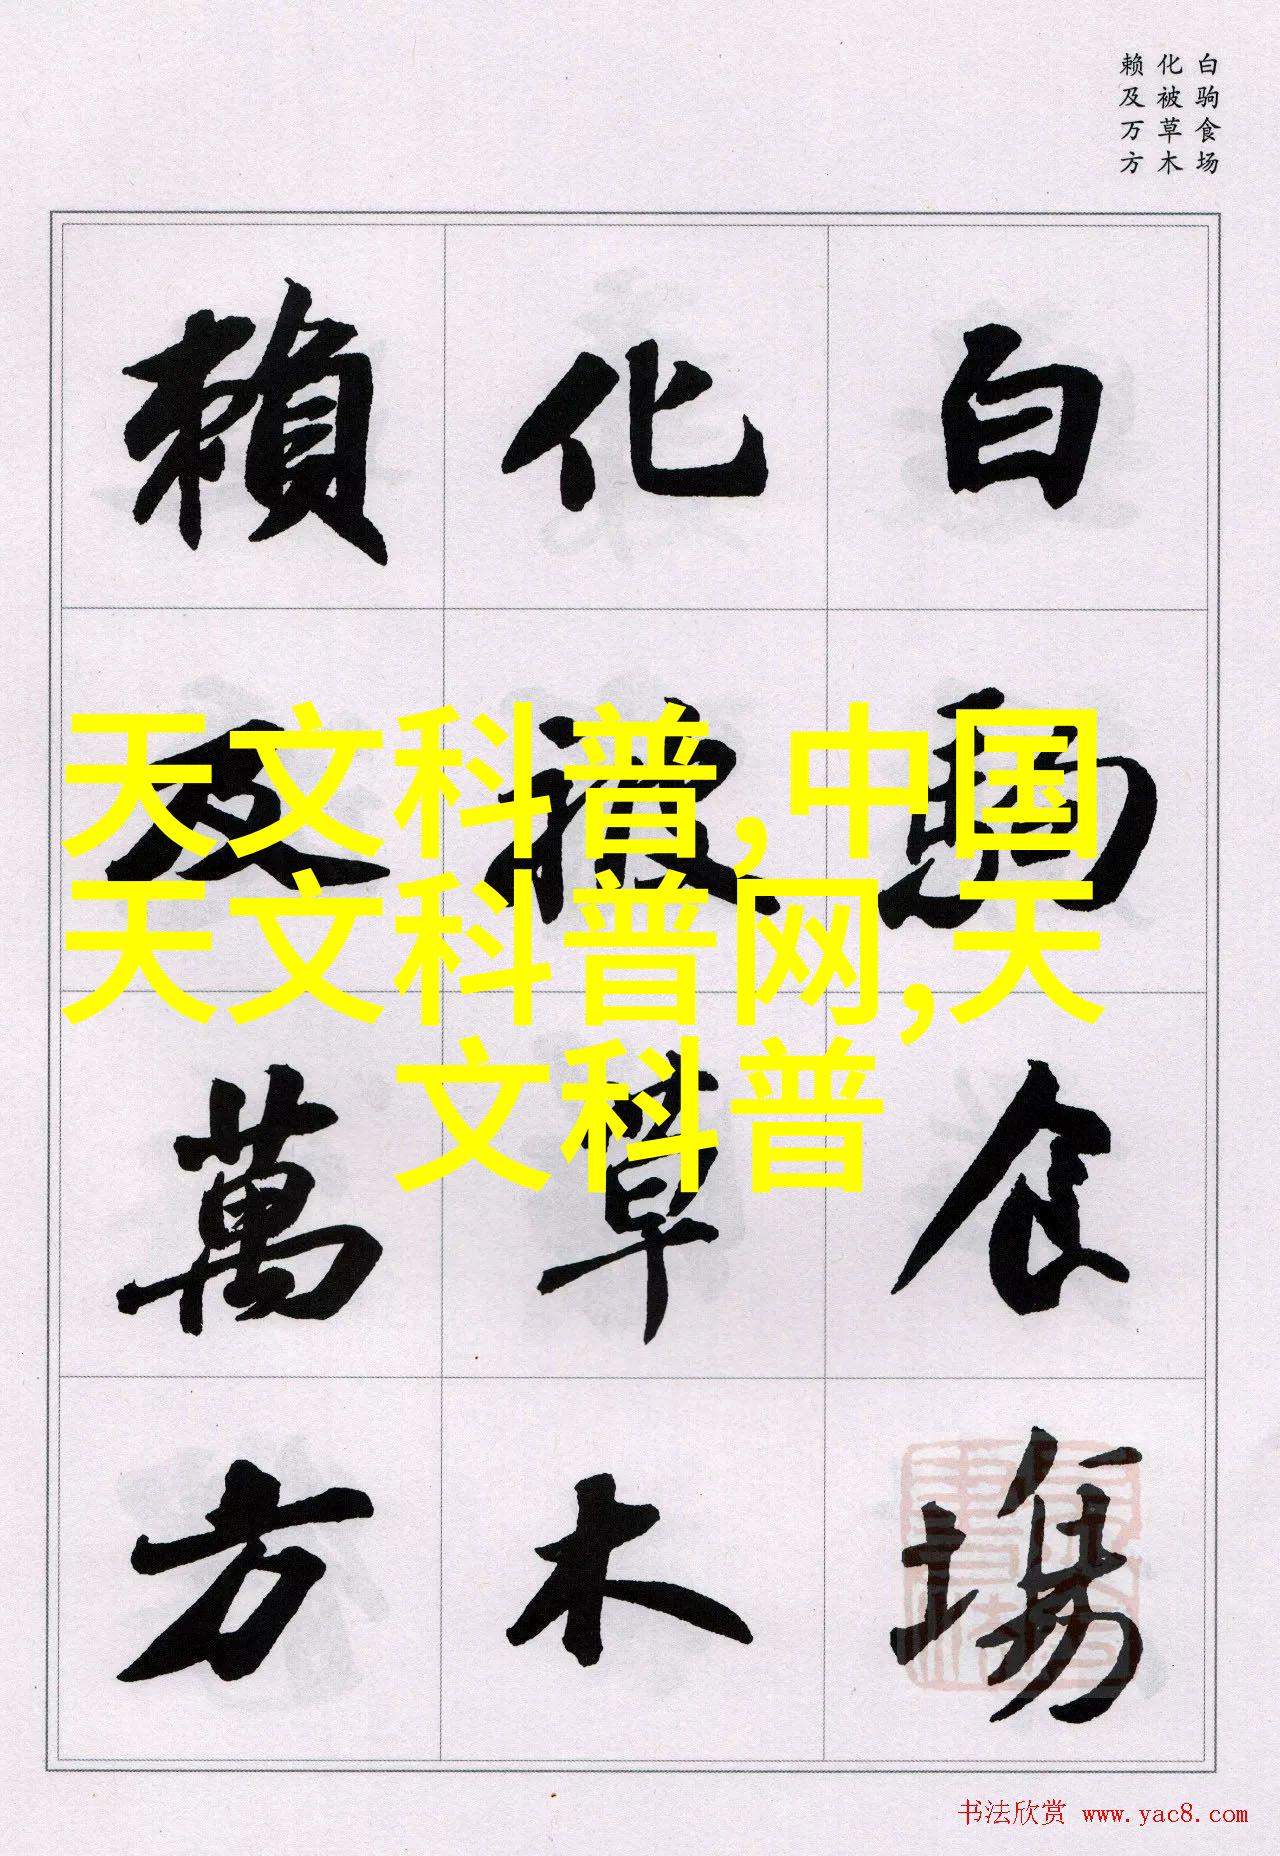 白驹食场
化被草木
赖及万方
白駒食場
化被草木
賴及萬方
天文科普,中国
天文科普网,天
文科普
书法欣赏 www.yac8.com